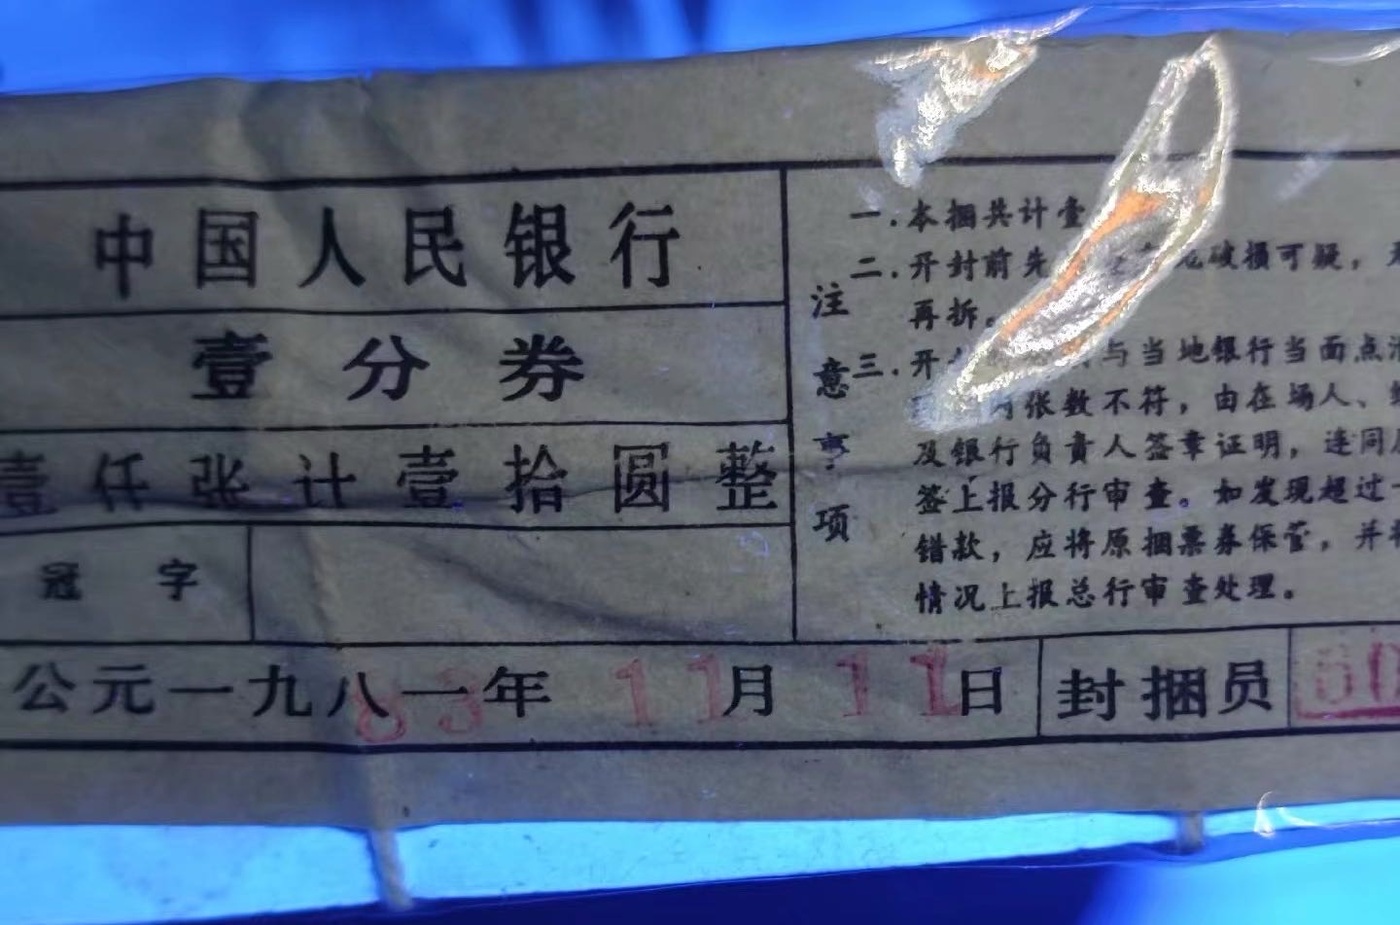 中国人民银行
壹分券
壹仟张计壹拾圆整
冠字
公元一九八一年 83 11月 11日
封捆员
注意事项
一.本捆共计壹
二.开封前先 破损可疑，
再拆。
三.开 与当地银行当面点
张数不符，由在场人、
及银行负责人签章证明，连同
签上报分行审查。如发现超过
错款，应将原捆票券保管，并
情况上报总行审查处理。